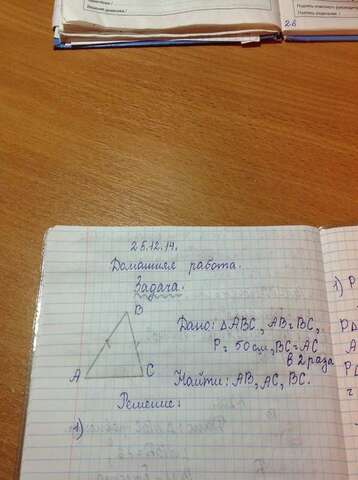 26
25.12.14.
Домашняя работа.
Задача.
B
A
C
Дано: △ABC, AB=BC,
P=50см, BC=AC
в 2 раза
Найти: AB, AC, BC.
Решение:
1)
1) P
P△
A
P△